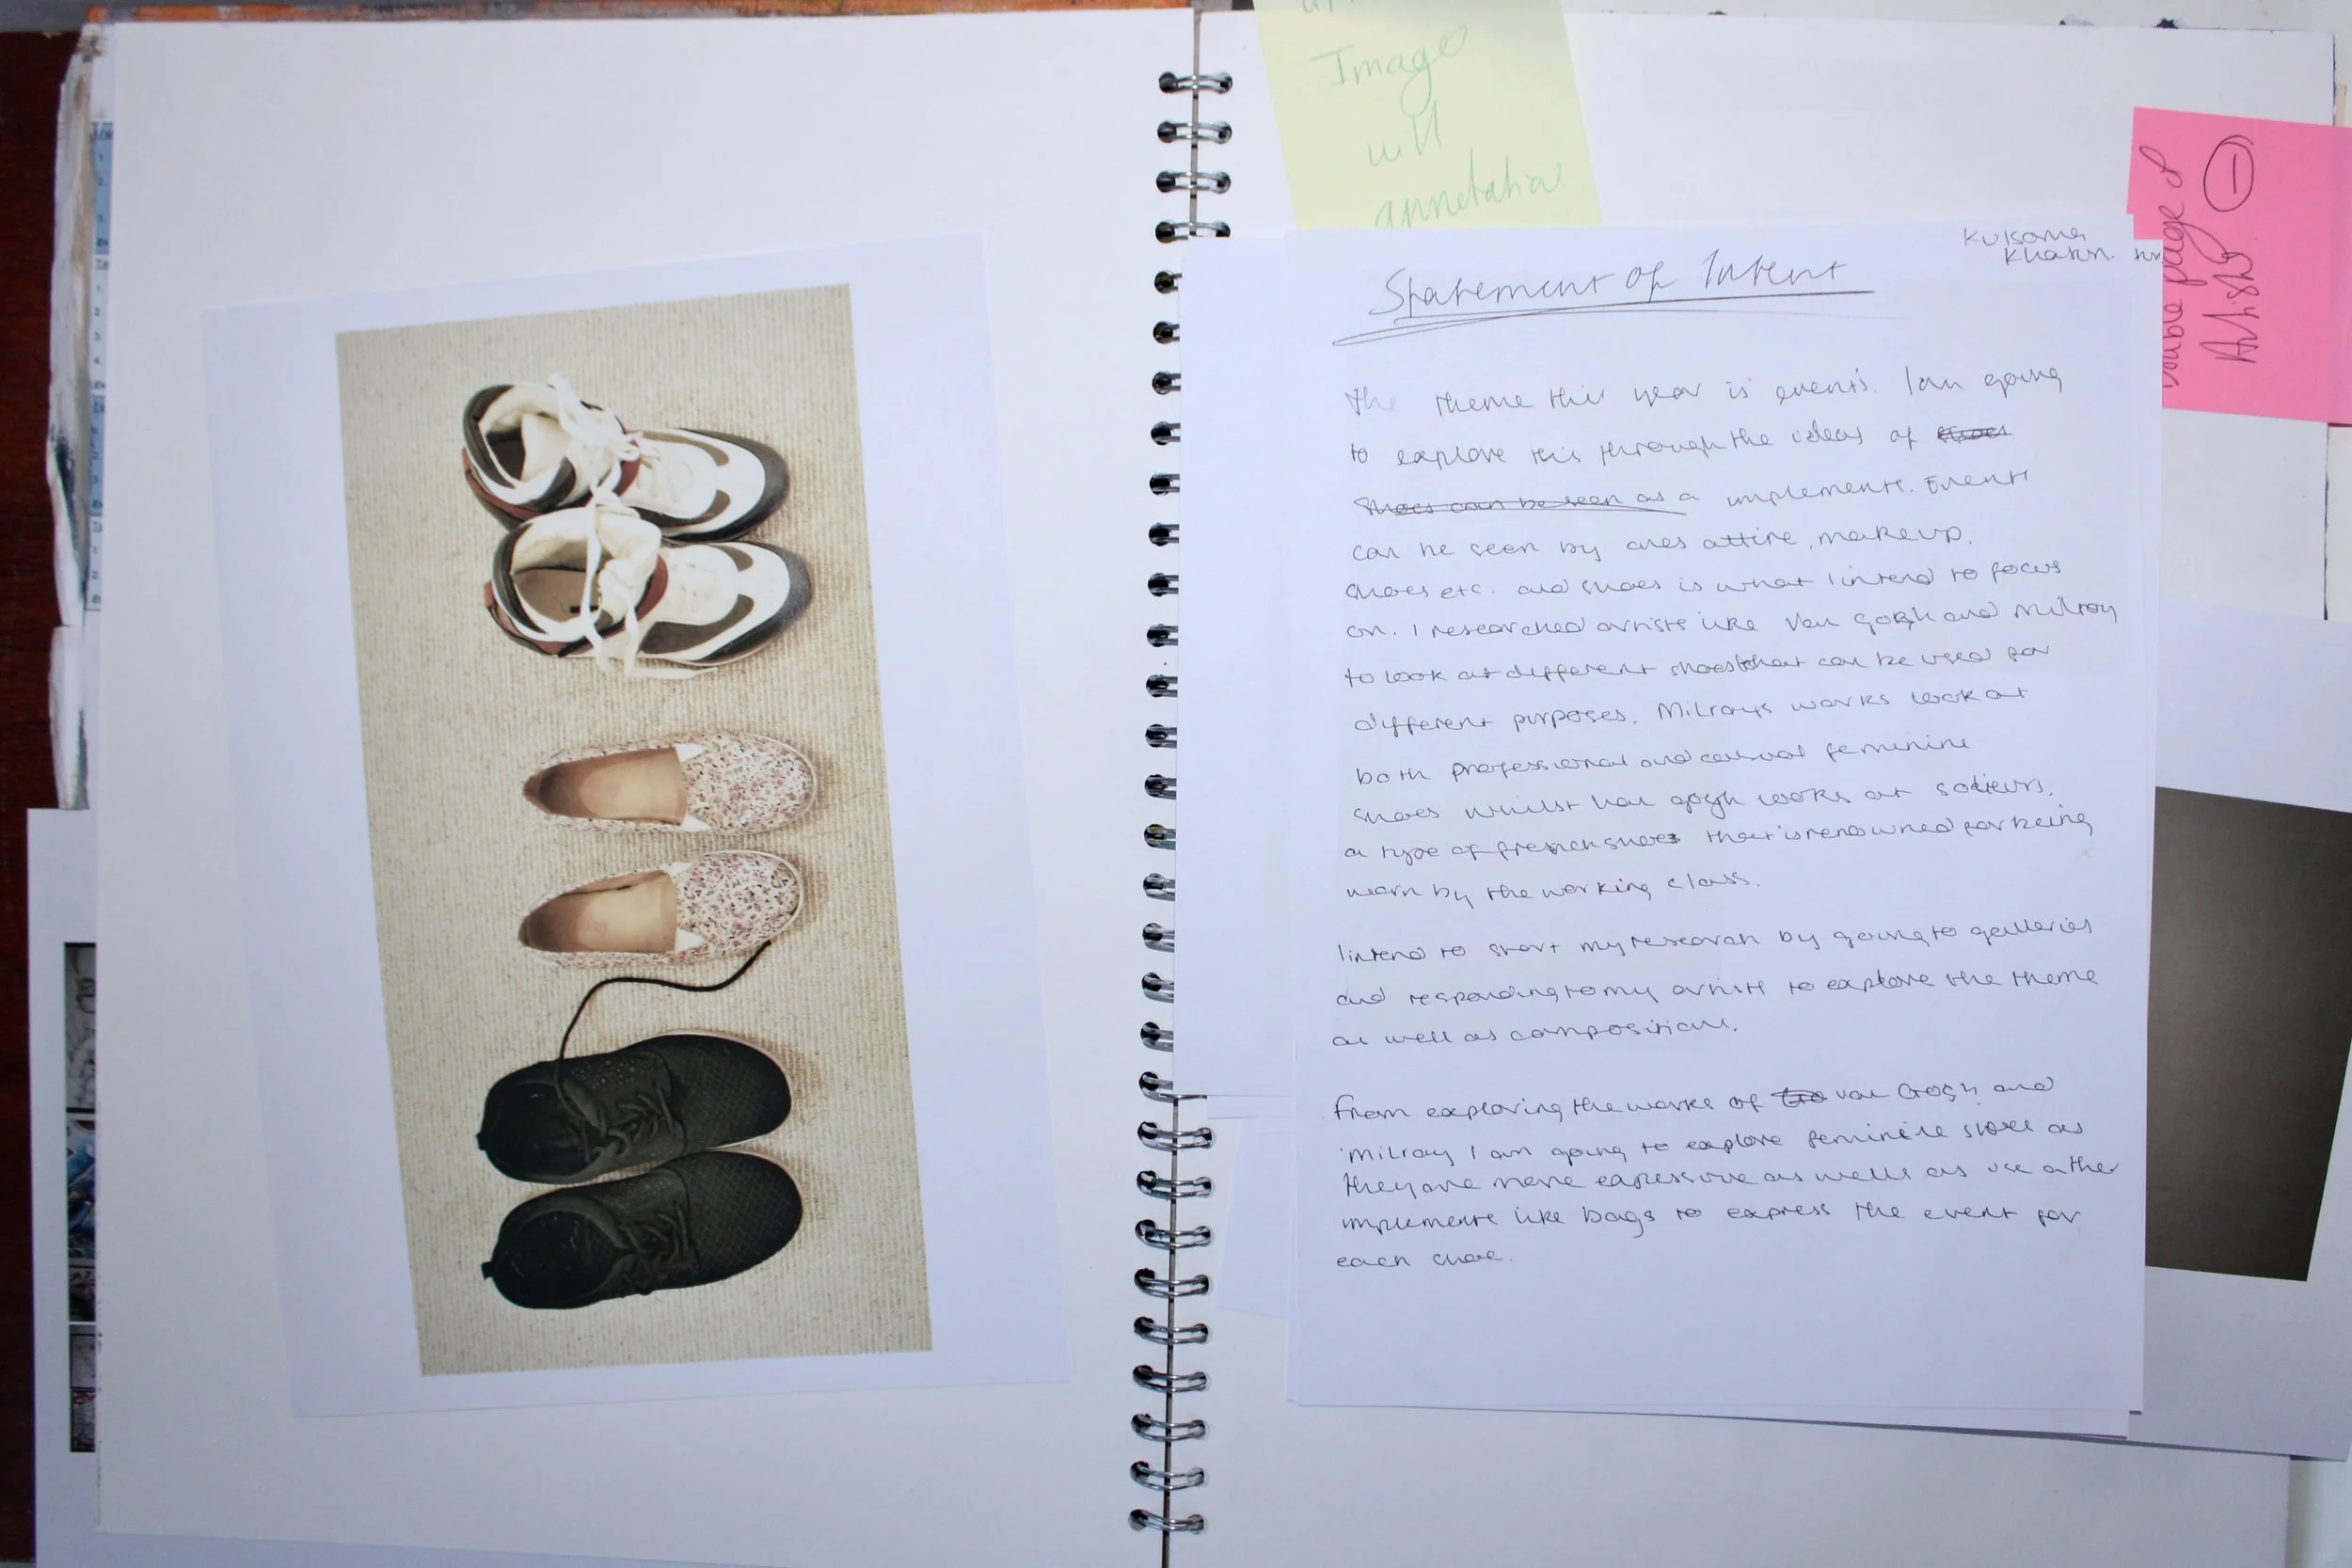 Image
will
annotation
Double page of
Artist
Kulsoma
Khatun.
Statement of Intent
the theme this year is events. I am going
to explore this through the ideas of shoes
Shoes can be seen as a implements. Events
can be seen by ones attire, makeup,
shoes etc. and shoes is what I intend to focus
on. I researched artists like Van gogh and Milroy
to look at different shoes that can be used for
different purposes. Milroys works look at
both professional and casual feminine
shoes whilst Van gogh looks at
a type of french shoes that is renowned for being
worn by the working class.
I intend to start my research by going to galleries
and responding to my artists to explore the theme
as well as compositions.
From exploring the works of van Gogh and
Milroy I am going to explore feminine shoes as
they are more expressive as wells as use other
implements like bags to express the event for
each shoe.